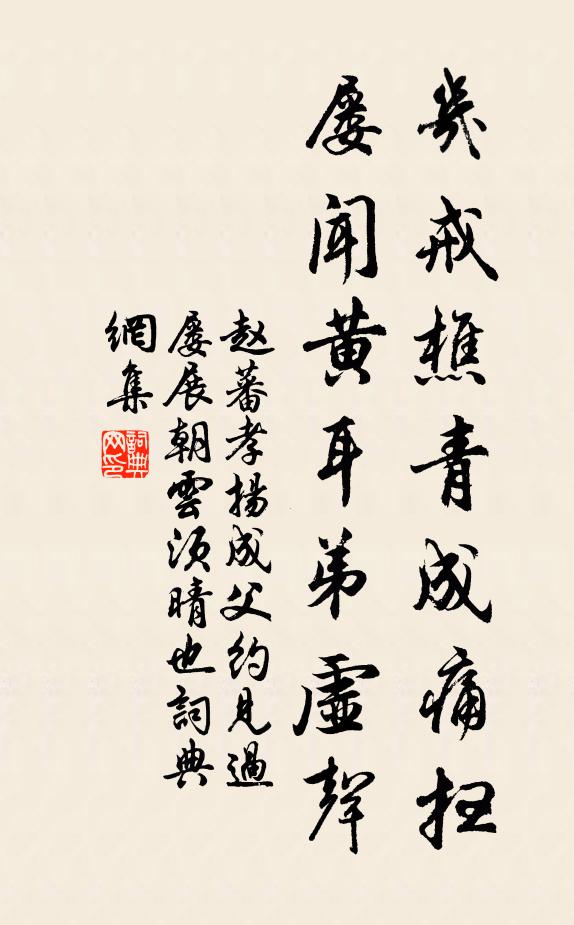 幾戒樵青成痛扫
屢聞黃耳弟虛聲
赵蕃孝揚成父約見過
屢展朝雲須晴也詞典
網集
詞典網印